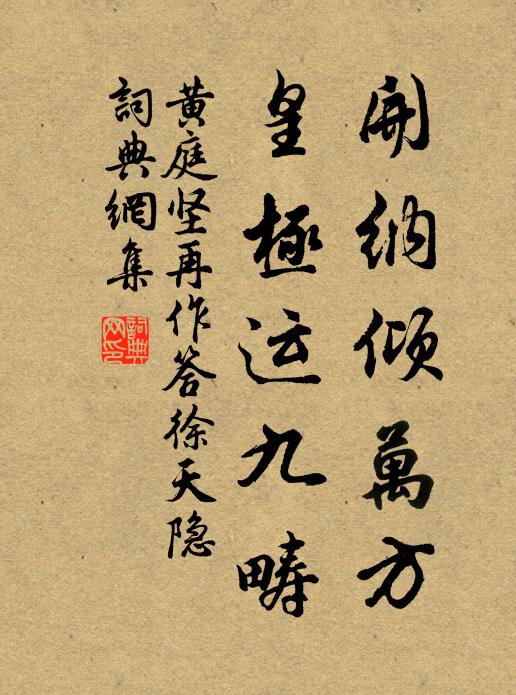 開納傾萬方
皇極运九疇
黄庭坚再作答徐天隐
詞典網集
詞典网印